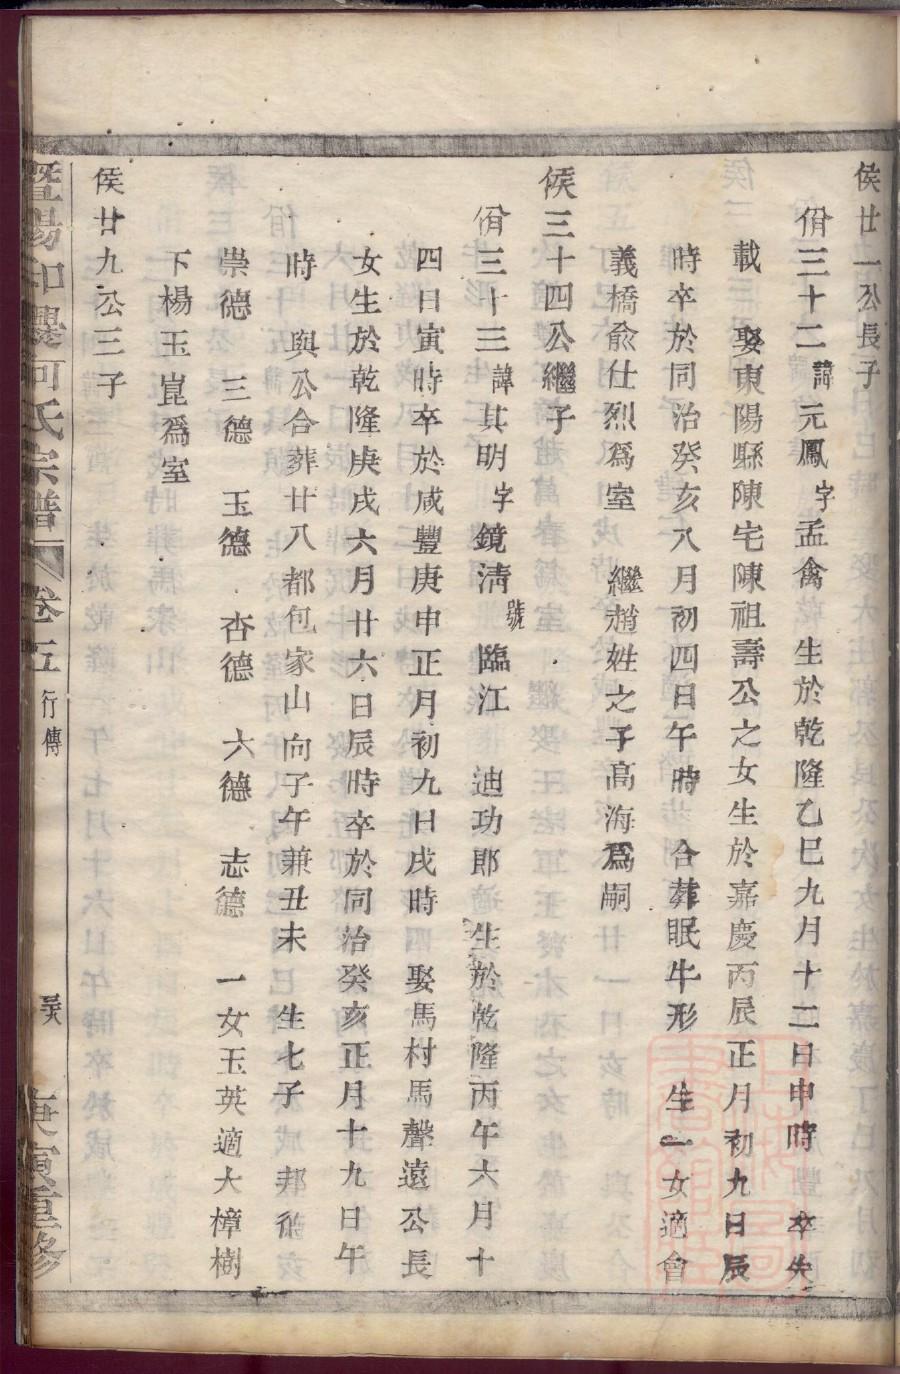 侯廿一公長子
佾三十二諱元鳳字孟禽 生於乾隆乙巳九月十二日申時 卒失
載 娶東陽縣陳宅陳祖壽公之女生於嘉慶丙辰正月初九日辰
時卒於同治癸亥八月初四日午時 合葬眠牛形 生一女適會
義橋俞仕烈爲室 繼趙姓之子高海爲嗣
侯三十四公繼子
佾三十三諱其明字鏡清號臨江 迪功郎 生於乾隆丙午六月十
四日寅時卒於咸豐庚申正月初九日戌時 娶馬村馬聲遠公長
女生於乾隆庚戌六月廿六日辰時卒於同治癸亥正月十九日午
時 與公合葬廿八都包家山向子午兼丑未 生七子 邦德
崇德 三德 玉德 杏德 六德 志德 一女玉英適大樟樹
下楊玉崑爲室
侯廿九公三子
暨陽 何氏宗譜 卷五 行傳 庚寅重修